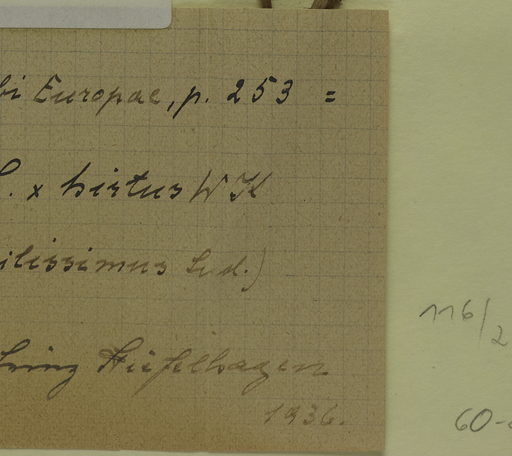 bi Europae, p. 253 =
. x hirtus W K
ilissimus Sud.)
Hüfelhagen
1936.
116/2
60-